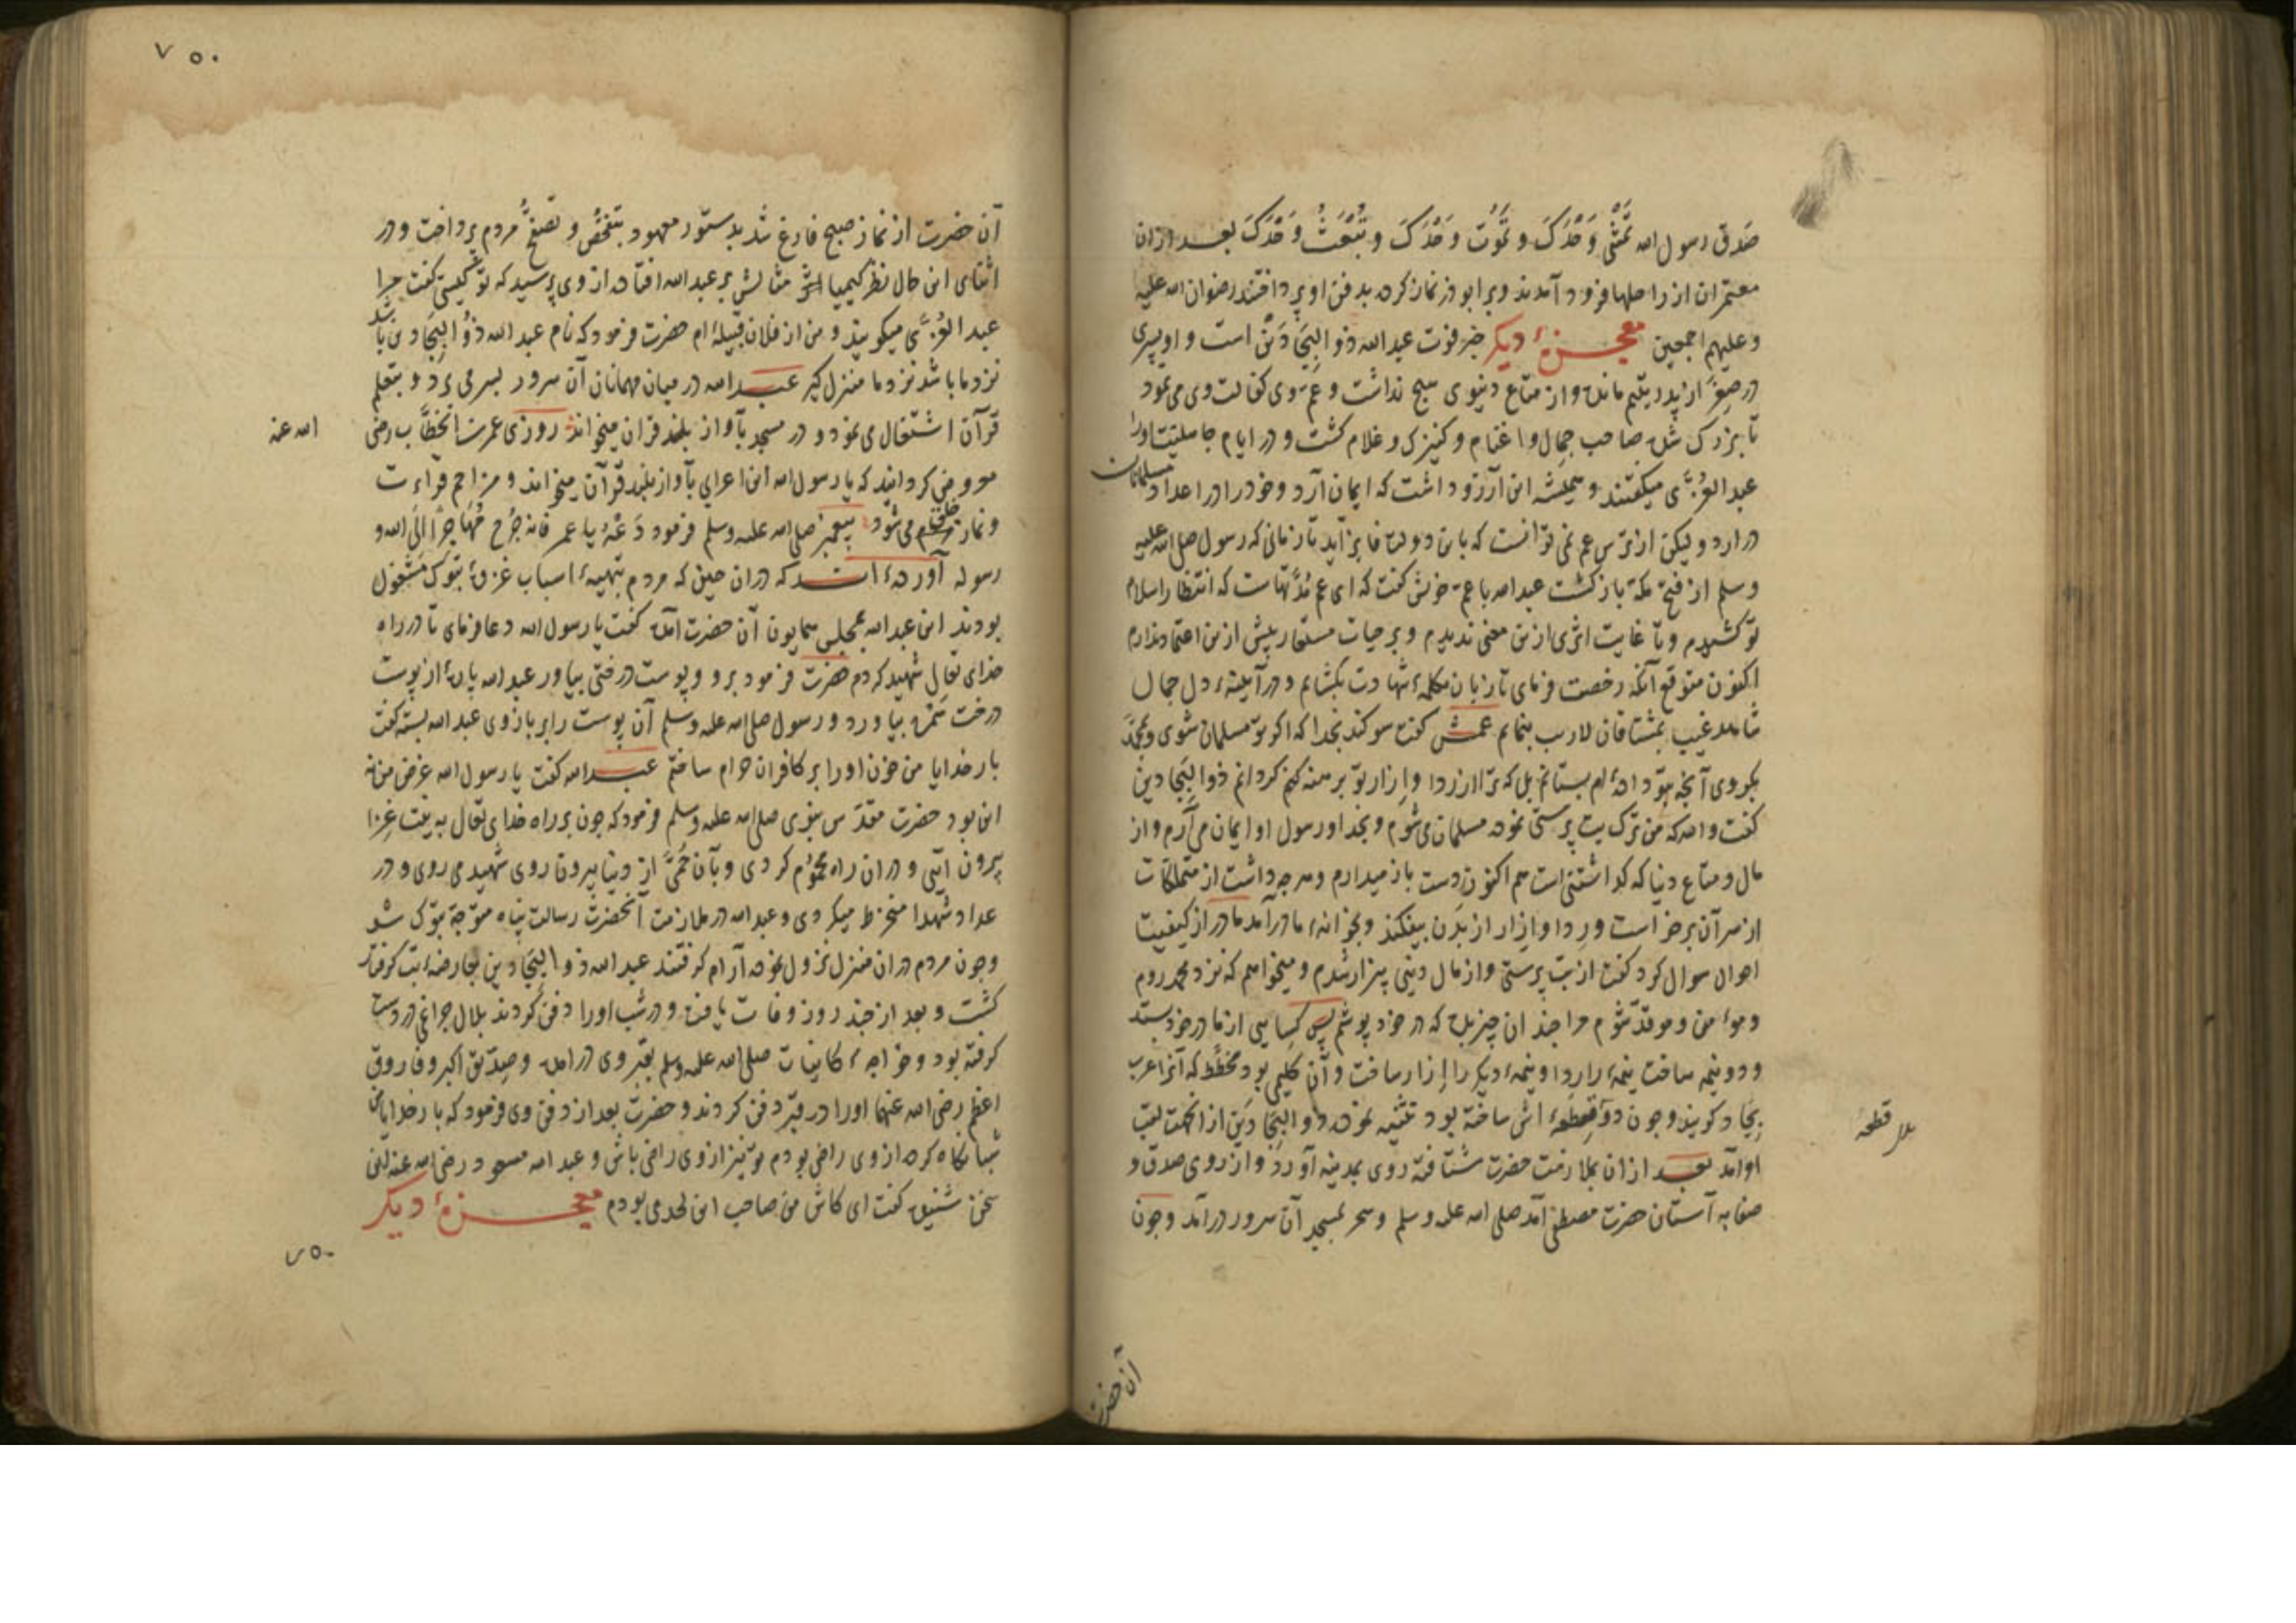 صَدق رسول الله تَمْشی وَحْدَکَ و تَمُوتُ وَحْدَکَ و تُبْعَثُ وَحْدَکَ بعد ازان
معتمران از راحلها فرود آمدند و بر ابوذر نماز کرده بدفن او پرداختند رضوان الله علیه
و علیهم اجمعین معجزهٔ دیکر خبر فوت عبدالله ذو البِجَادَین است و او پسری
در صِغَر از پدر یتیم مانده و از متاع دنیوی هیچ نداشت و عمّ وی کفالت وی می نمود
تا بزرک شده صاحب جمال و اغنام و کنیزک و غلام کشت و در ایام جاهلیت او را
عبد العُزّی میکفتند و همیشه این آرزو داشت که ایمان آرد و خود را در اعداد مسلمانان
در ارد و لیکن از ترس عم نمی توانست که باین دولت فایز آید تا زمانی که رسول صلی الله علیه
وسلم از فتح مکّه باز کشت عبدالله با عمّ خویش کفت که ای عم مُدّتهاست که انتظار اسلام
تو کشیدم و تا غایت اثری ازین معنی ندیدم و بر حیات مستعار بیش ازین اعتماد ندارم
اکنون متوقع آنکه رخصت فرمای تا زبان بکلمهٔ شهادت بکشایم و در آیینهٔ دل جمال
شاهد غیب بمشتاقان لاریب بنمایم عمش کفت سوکند بخدا که اکر تو مسلمان شوی و بمحمّد
بکروی آنچه بتو داده ام بستانم بل که ترا از ردا و ازار تو برهنه کردانم ذوالبِجادین
کفت والله که من ترک بت پرستی نموده مسلمان می شوم و بخدا و رسول او ایمان می آرم و از
مال و متاع دنیا که کذاشتنی است هم اکنون دست باز میدارم و هرچه داشت از متملکات
از سر آن برخواست و رِدا و اِزار از بدن بیفکند و بخانهٔ مادر آمد مادر از کیفیت
احوال سوال کرد کفت از بت پرستی و از مال دینی بیزار شدم و میخواهم که نزد محمد روم
و مؤمن و موحّد شوم مرا چندان چیز بده که در خود پوشم پس کساهی از مادر خود بستد
و دو نیمه ساخت نیمهٔ را ردا و نیمهٔ دیکر را ازار ساخت و آن کلیمی بود مخطّط که آنرا عرب
بِجَاد کویند و چون دو قطعهٔ اش ساخته بود تثنیه نموده ذو البِجَادَین از انجهت لقب
او آمد بعد از ان بملازمت حضرت شتافته روی بمدینه آورد و از روی صدق و
صفا به آستان حضرت مصطفی آمد صلی الله علیه وسلم و سحر بمسجد آن سرور درآمد و چون
قطعه
آن حضرت
۷۵۰
آن حضرت از نماز صبح فارغ شد بدستور معهود بتفحّص و تصفّح مردم پرداخت و در
اثنای این حال نظر کیمیا اثر مثالش بر عبدالله افتاد از وی پرسید که تو کیستی کفت مرا
عبد العُزّی میکویند و من از فلان قبیله ام حضرت فرمود که نام عبدالله ذُو البِجَادین باشد
نزد ما باش و نزد ما منزل کیر عبدالله در میان مهمانان آن سرور بسر می برد و بتعلم
قرآن اشتغال می نمود و در مسجد بآواز بلند قران میخواند روزی عمر بن الخطّاب رضی
الله عنه
معروض کردانید که یا رسول الله این اعرابی بآواز بلند قرآن میخواند و مزاحم قراءت
و نماز خلق می شود پیغمبر صلی الله علیه وسلم فرمود دَعْهُ یا عمر فانه خَرج مُهَاجِرًا الَی الله و
رسوله آورده اند که دران حین که مردم بتهیهٔ اسباب غزوهٔ تبوک مشغول
بودند این عبدالله بمجلس همایون آن حضرت آمده کفت یا رسول الله دعا فرمای تا در راه
خدای تعالی شهید کردم حضرت فرمود برو و پوست درختی بیاور عبدالله پارهٔ از پوست
درخت سَمُره بیاورد و رسول صلی الله علیه وسلم آن پوست را بر بازوی عبدالله بسته کفت
بار خدایا من خون او را بر کافران حرام ساختم عبدالله کفت یا رسول الله غرض من نه
این بود حضرت مقدّس نبوی صلی الله علیه وسلم فرمود که چون بر راه خدای تعالی به نیت غزا
بیرون آیی و دران راه محموم کردی و بآن حُمّی از دنیا بیرون روی شهید می روی و در
عداد شهدا منخرط میکردی و عبدالله در ملازمت آنحضرت رسالت پناه متوجّه تبوک شد
و چون مردم دران منزل نزول نموده آرام کرفتند عبدالله ذو البِجَادین بعارضهٔ تب کرفتار
کشت و بعد از چند روز وفات یافت و در شب او را دفن کردند بلال چراغی در دست
کرفته بود و خواجهٔ کاینات صلی الله علیه وسلم بقبر وی درامد و صدّیق اکبر و فاروق
اعظم رضی الله عنهما او را در قبر دفن کردند و حضرت بعد از دفن وی فرمود که بار خدایا من
شبانکاه کرده از وی راضی بودم تو نیز از وی راضی باش و عبدالله مسعود رضی الله عنه این
سخن شنیده کفت ای کاش من صاحب این لحد می بودم معجزهٔ دیکر
۷۵۰